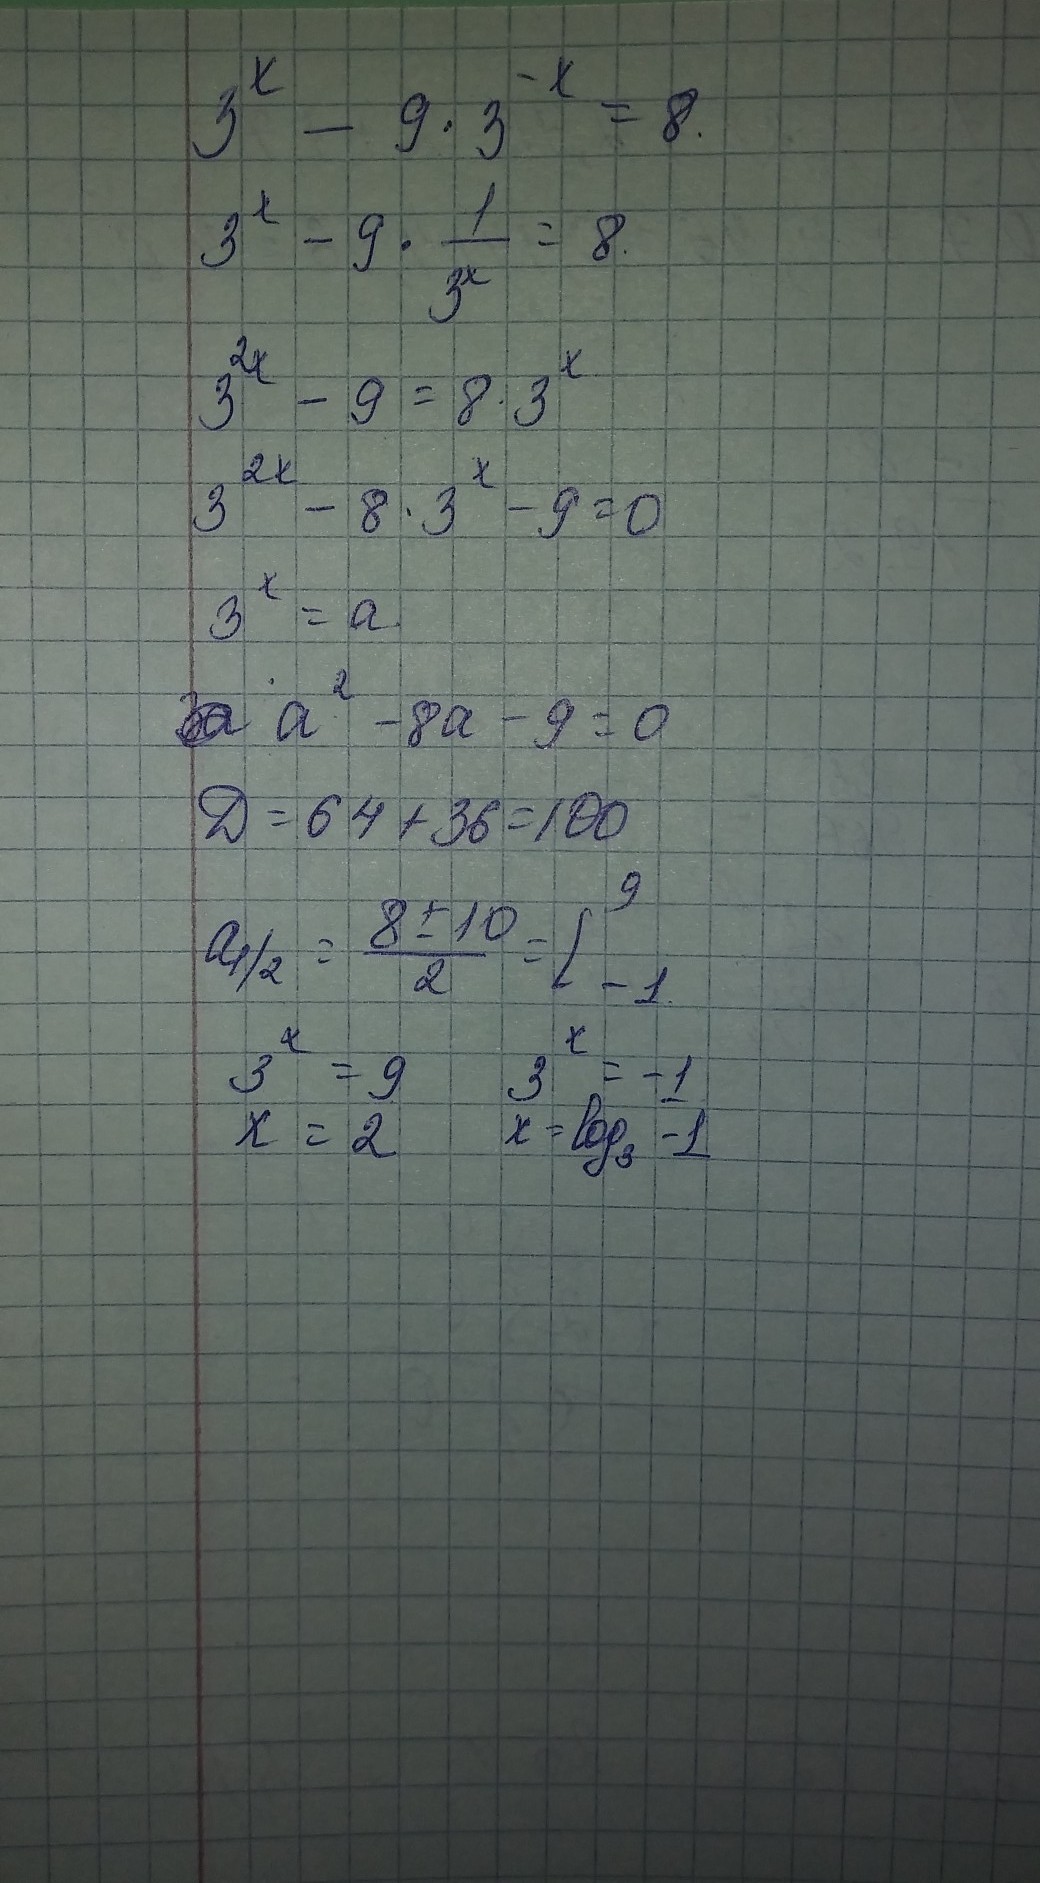 3^x - 9 · 3^-x = 8.
3^x - 9 · 1/3^x = 8.
3^2x - 9 = 8 · 3^x
3^2x - 8 · 3^x - 9 = 0
3^x = a
a^2 - 8a - 9 = 0
Д = 64 + 36 = 100
a1/2 = 8 ± 10 / 2 = [ 9 -1
3^x = 9 3^x = -1
x = 2 x = log3 -1